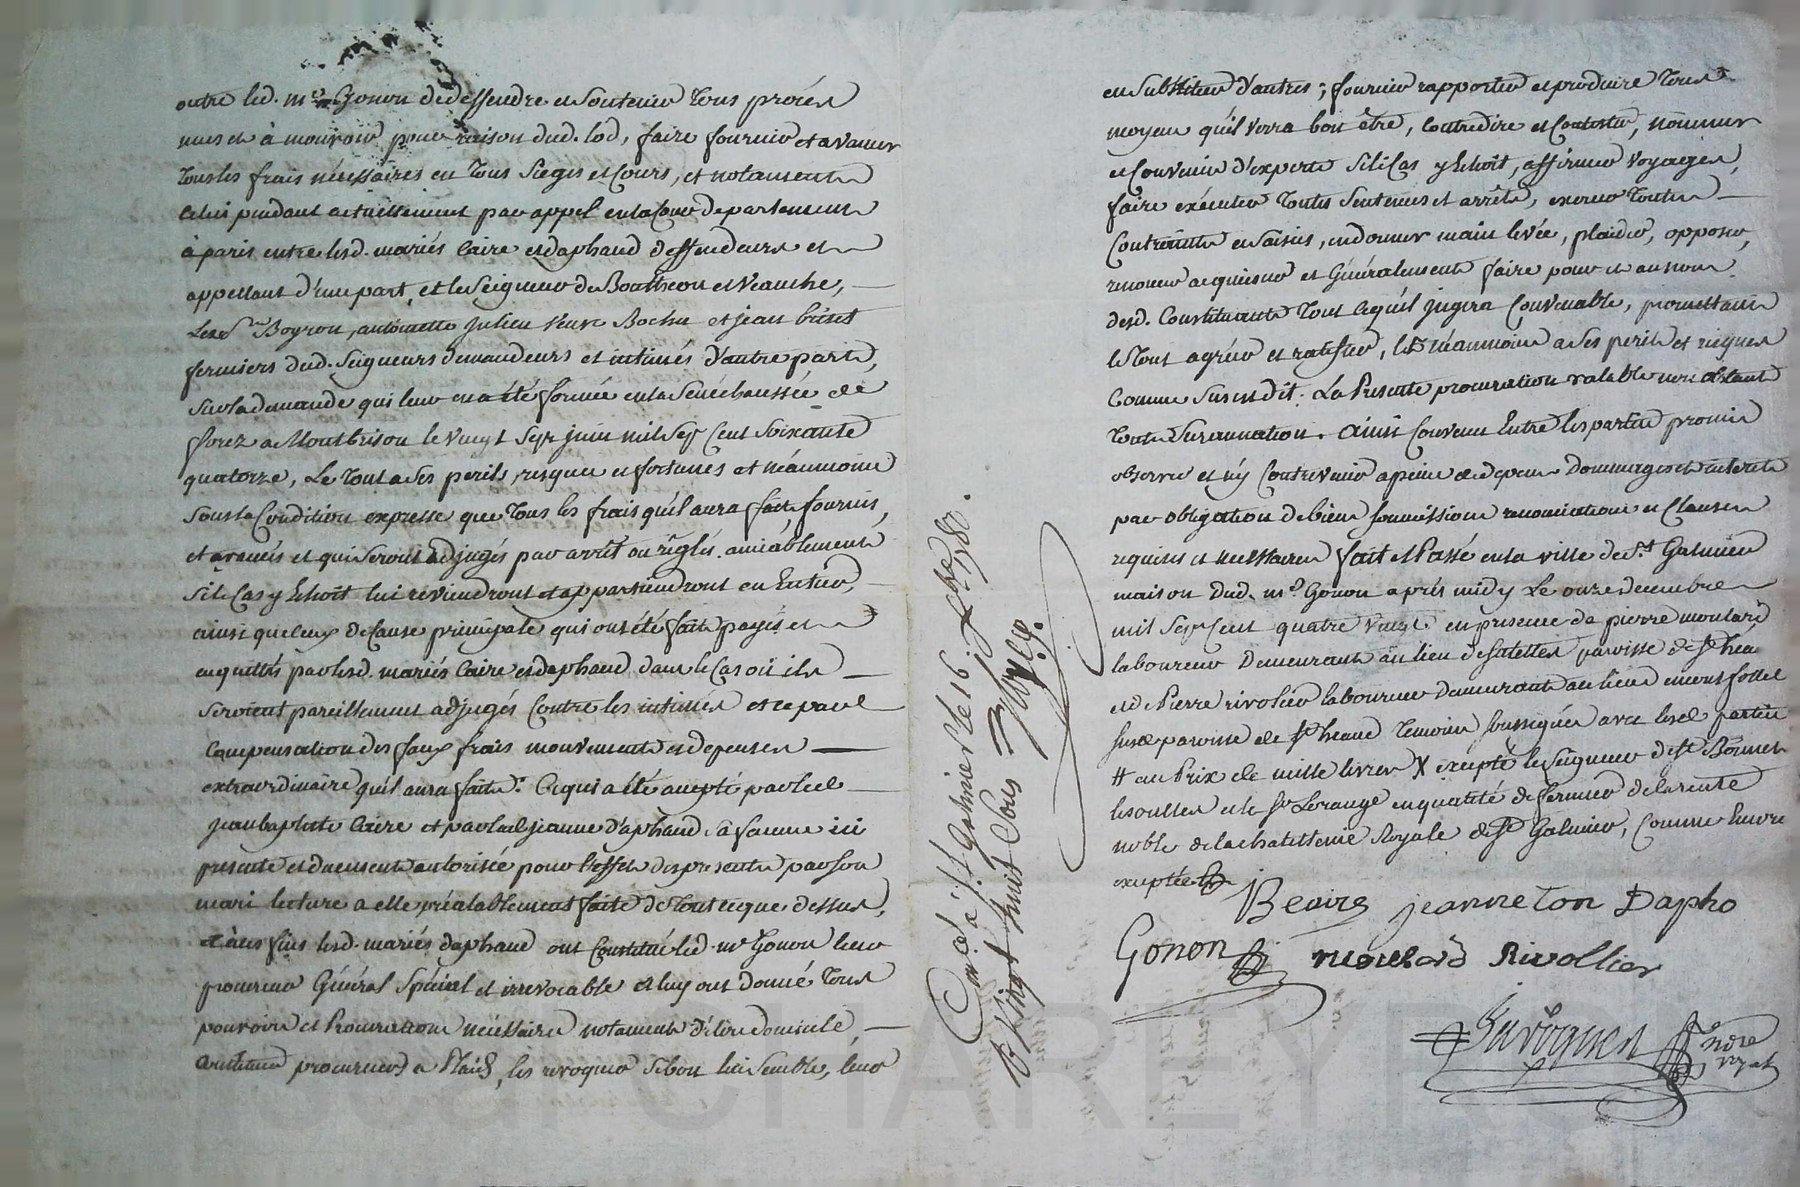 outre led. me. Gonon de deffendre et soutenir tous procés
mus et à mouvoir pour raison dud. lod, faire fournir et avancer
tous les frais nécéssaires en tous sieges et cours, et notament
celui pendant actuellement par appel en la cour de parlement
à paris entre lesd. mariés Caire et daphaud deffendeurs et
appellant d'une part, et le seigneur de Bouthéon et Veauche,
Les srs Boyron, antoinette julien veuve Bochu et jean
fermiers dud. seigneurs demandeurs et intimés d'autre part,
sur la demande qui leur en a été formée en la sénéchaussée de
forez a Montbrison le vingt sept juin mil sept cent soixante
quatorze, Le tout a ses perils, risques et fortunes et néanmoins
sous la condition expresse que tous les frais qu'il aura fait, fournis,
et avancés et qui seront adjugés par arrêt ou réglés amiablement
si le cas y echoit lui reviendront et appartiendront en entier,
ainsi que ceux de cause principale qui ont été fait payés et
acquittés par lesd. mariés Caire et daphaud dans le cas où ils
seroient pareillement adjugés contre les intimés et ce par
compensation des faux frais mouvements et depenses
extraordinaire qu'il aura faits. Ce qui a été accepté par led
jean baptiste Caire et par lad jeanne d'aphaud sa femme ici
presente et duement autorisée pour l'effet des presentes par son
mari lecture a elle préalablement faite de tout ce que dessus,
et à ces fins lesd. mariés daphaud ont constitué led. me Gonon leur
procureur Général spécial et irrevocable et luy ont donné tous
pouvoirs et procurations nécéssaires notament d'élire domicile,
constituer procureurs a plaids, les revoquer si bon lui semble, leur
en substituer d'autres ; fournir rapporter et produire tous
moyens qu'il verra bon être, contredire et contester, nommer
et convenir d'experts si le cas y echoit, affirmer voyages,
faire exécuter toutes sentences et arrêts, exercer toutes
contraintes et saisies, en donner main levée, plaider, opposer,
renoncer acquiescer et Généralement faire pour et au nom
desd. constituants tout ce qu'il jugera convenable, promettant
le tout agréer et ratifier, néanmoins a ses perils et risques
comme sus est dit. La Presente procuration valable non obstant
toute surannation. ainsi convenu entre les parties promis
observer et n'y contrevenir a peine de dommages et interets
par obligation de biens soumissions renonciations et clauses
requises et necéssaires fait et Passé en la ville de St. Galmier
maison dud. me. Gonon aprés midy Le onze décembre
mil sept cent quatre vingt en presence de pierre moulard
laboureur demeurant au lieu de paroisse de St hea
et de Pierre rivolier laboureur demeurant au lieu
susd paroisse de St heand temoins soussignés avec lesd parties
# au Prix de mille livres X excepté le seigneur de St Bonnet
les oulles et le sr Lerange en qualité de fermier de la rente
noble de la chatellenie Royale de St Galmier, comme encore
exceptée
BCaire jeanneton Dapho
Gonon moulard Rivollier
Javoguen
ndre
royal
Con.lé à St Galmier le 16 Xbre 1780.
R vingt huit sous